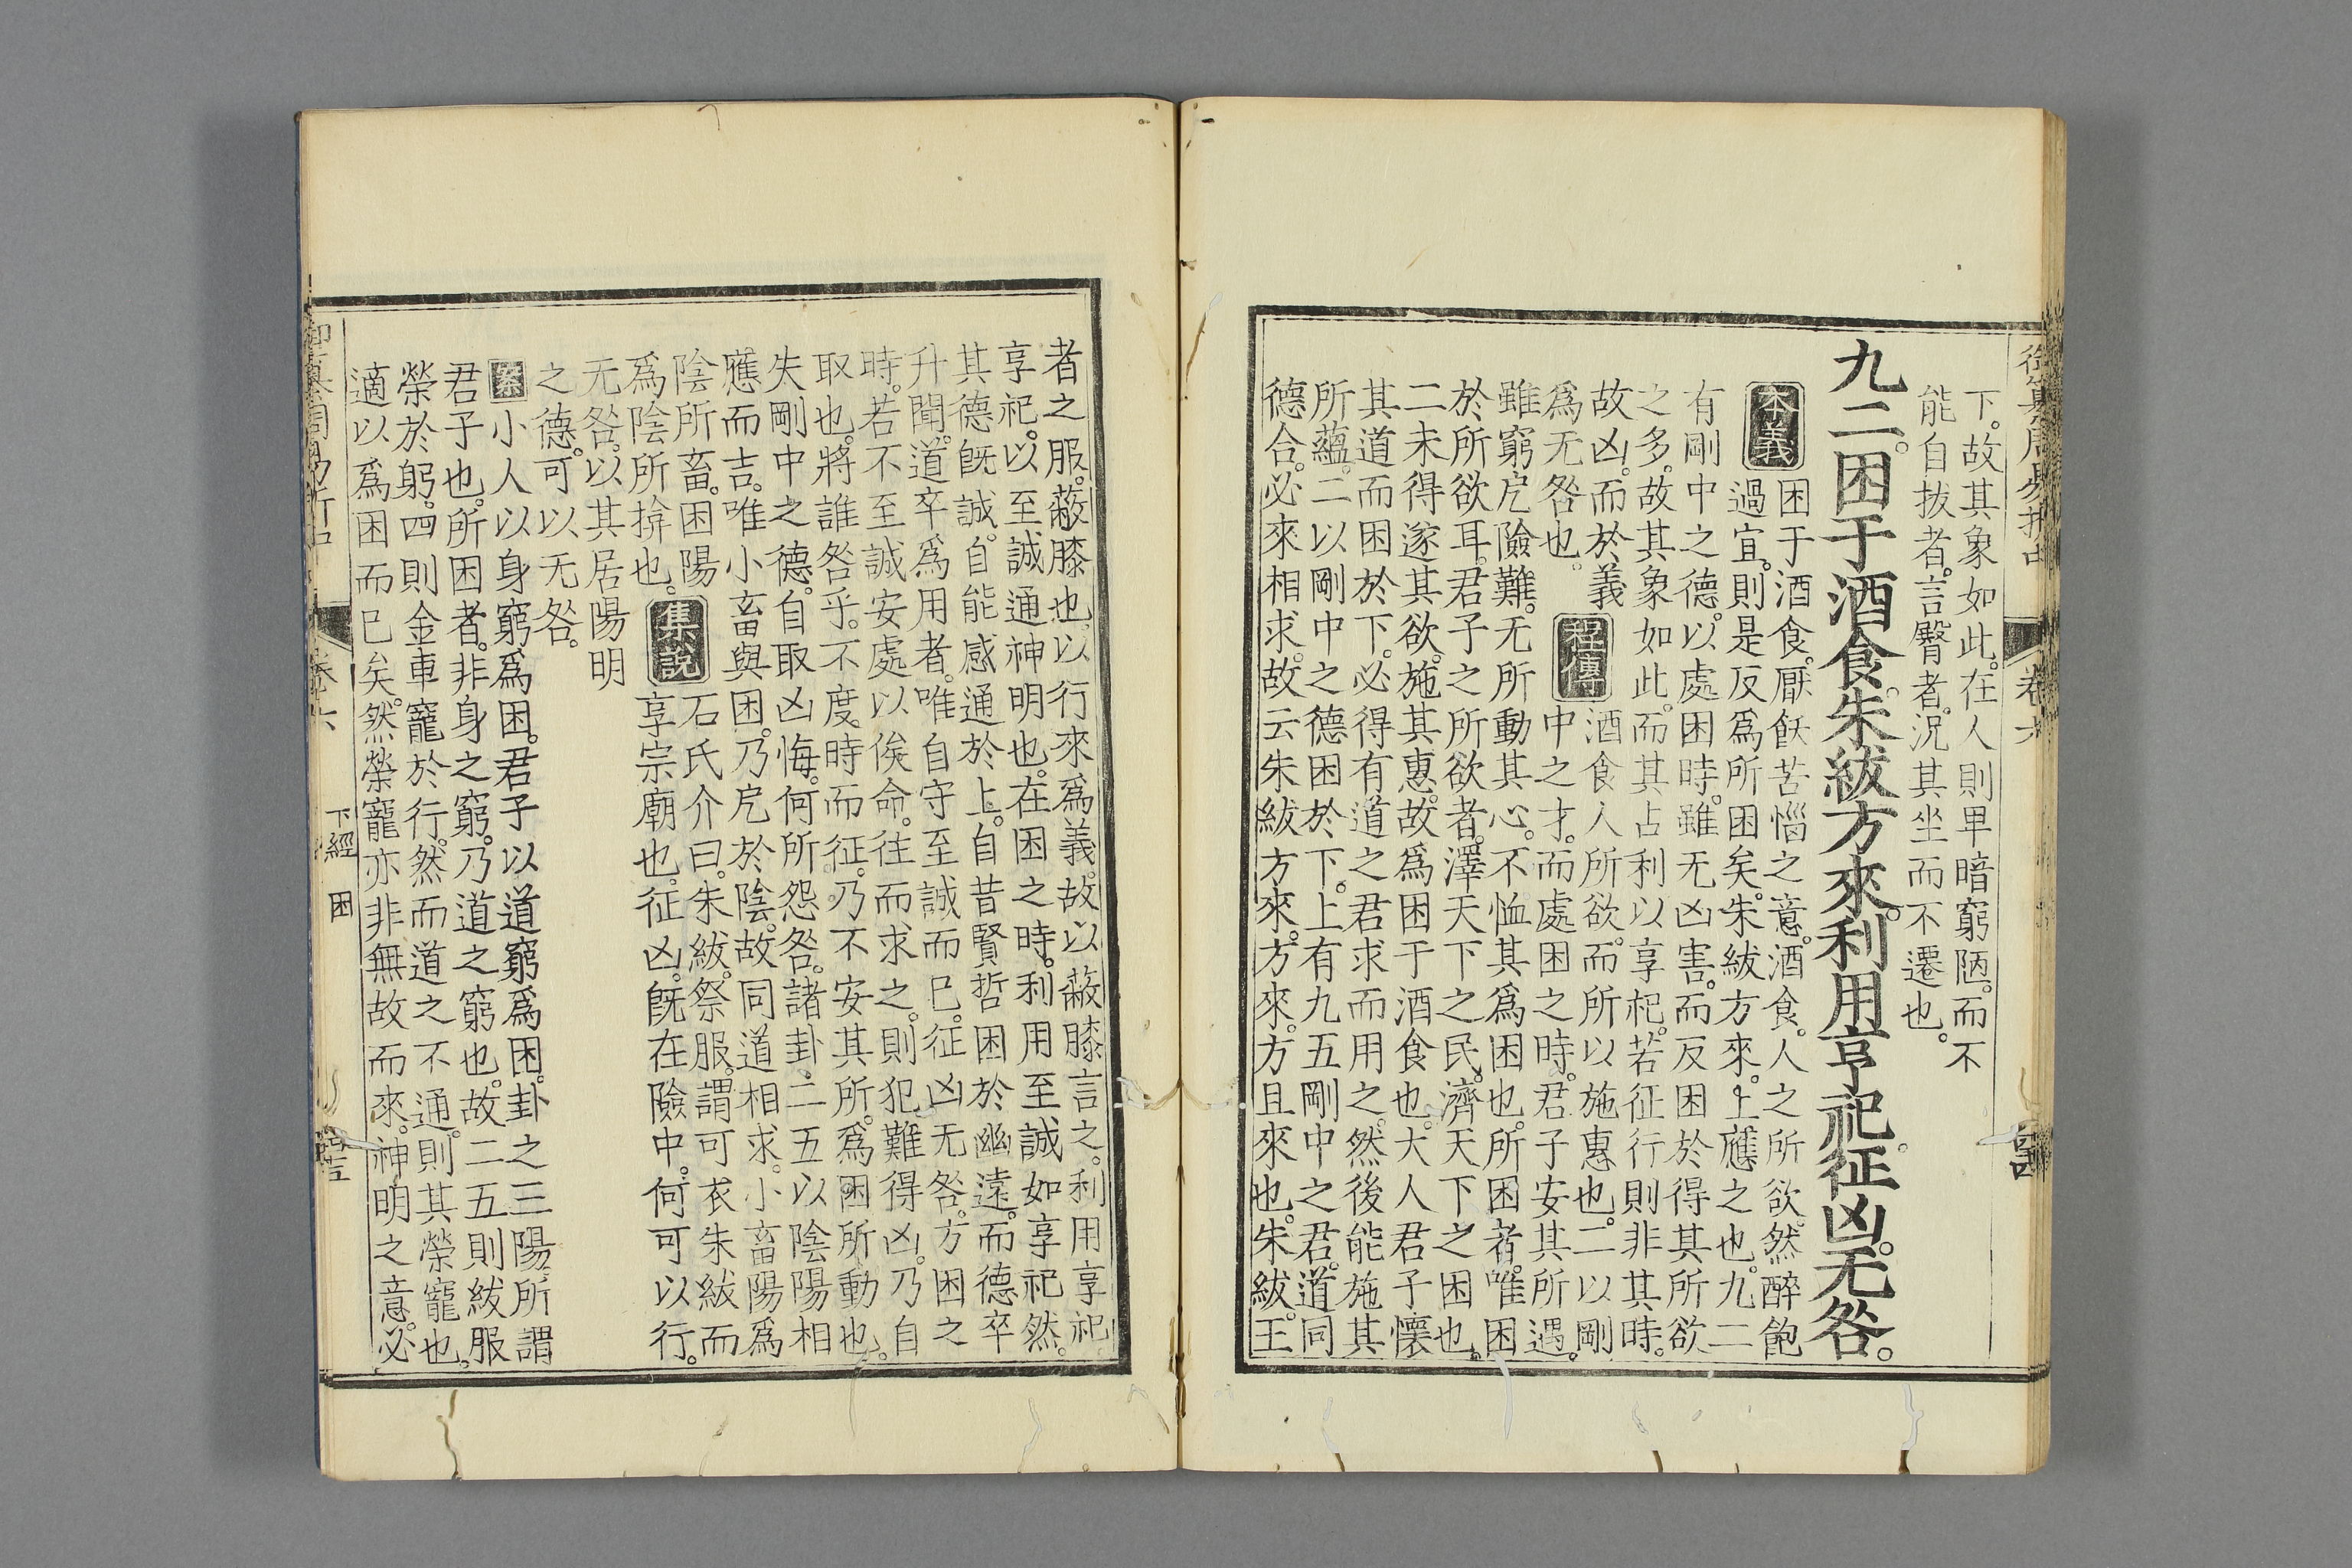 御纂周易折中 卷六
下。故其象如此。在人則卑暗窮陋。而不
能自拔者。言臀者。況其坐而不遷也。
九二。困于酒食。朱紱方來。利用亨祀。征凶。无咎。
本義 困于酒食。厭飫苦惱之意。酒食。人之所欲。然醉飽
過宜。則是反爲所困矣。朱紱方來。上應之也。九二
有剛中之德。以處困時。雖无凶害。而反困於得其所欲
之多。故其象如此。而其占利以享祀。若征行則非其時。
故凶。而於義
爲无咎也。
程傳 酒食人所欲。而所以施惠也。二以剛
中之才。而處困之時。君子安其所遇。
雖窮戹險難。无所動其心。不恤其爲困也。所困者。唯困
於所欲耳。君子之所欲者。澤天下之民。濟天下之困也。
二未得遂其欲。施其惠。故爲困于酒食也。大人君子懷
其道而困於下。必得有道之君求而用之。然後能施其
所蘊。二以剛中之德困於下。上有九五剛中之君。道同
德合。必來相求。故云朱紱方來。方來。方且來也。朱紱。王
者之服。蔽膝也。以行來爲義。故以蔽膝言之。利用享祀。
享祀。以至誠通神明也。在困之時。利用至誠如享祀然。
其德旣誠。自能感通於上。自昔賢哲困於幽遠。而德卒
升聞。道卒爲用者。唯自守至誠而已。征凶无咎。方困之
時。若不至誠安處以俟命。往而求之。則犯難得凶。乃自
取也。將誰咎乎。不度時而征。乃不安其所。爲困所動也。
失剛中之德。自取凶悔。何所怨咎。諸卦二五以陰陽相
應而吉。唯小畜與困。乃戹於陰。故同道相求。小畜陽爲
陰所畜。困陽
爲陰所揜也。
集說 石氏介曰。朱紱。祭服。謂可衣朱紱而
享宗廟也。征凶。旣在險中。何可以行。
无咎。以其居陽明
之德。可以无咎。
案 小人以身窮爲困。君子以道窮爲困。卦之三陽所謂
君子也。所困者。非身之窮。乃道之窮也。故二五則紱服
榮於躬。四則金車寵於行。然而道之不通。則其榮寵也。
適以爲困而已矣。然榮寵亦非無故而來。神明之意。必
卷六 下經 困